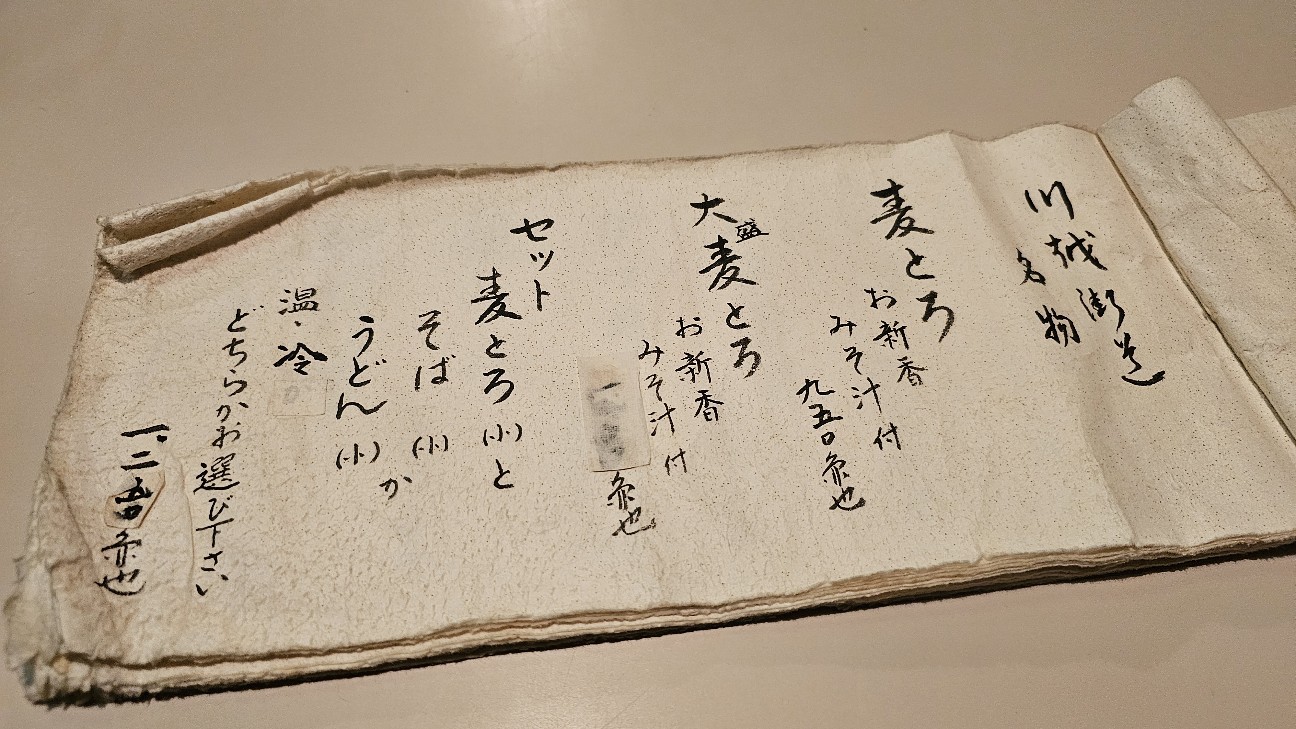 川越街道
名物
麦とろ
お新香
みそ汁付
九五〇円也
大盛麦とろ
お新香
みそ汁付
円也
セット
麦とろ(小)と
そば(小)か
うどん(小)
温、冷
どちらかお選び下さい
一、二五〇円也